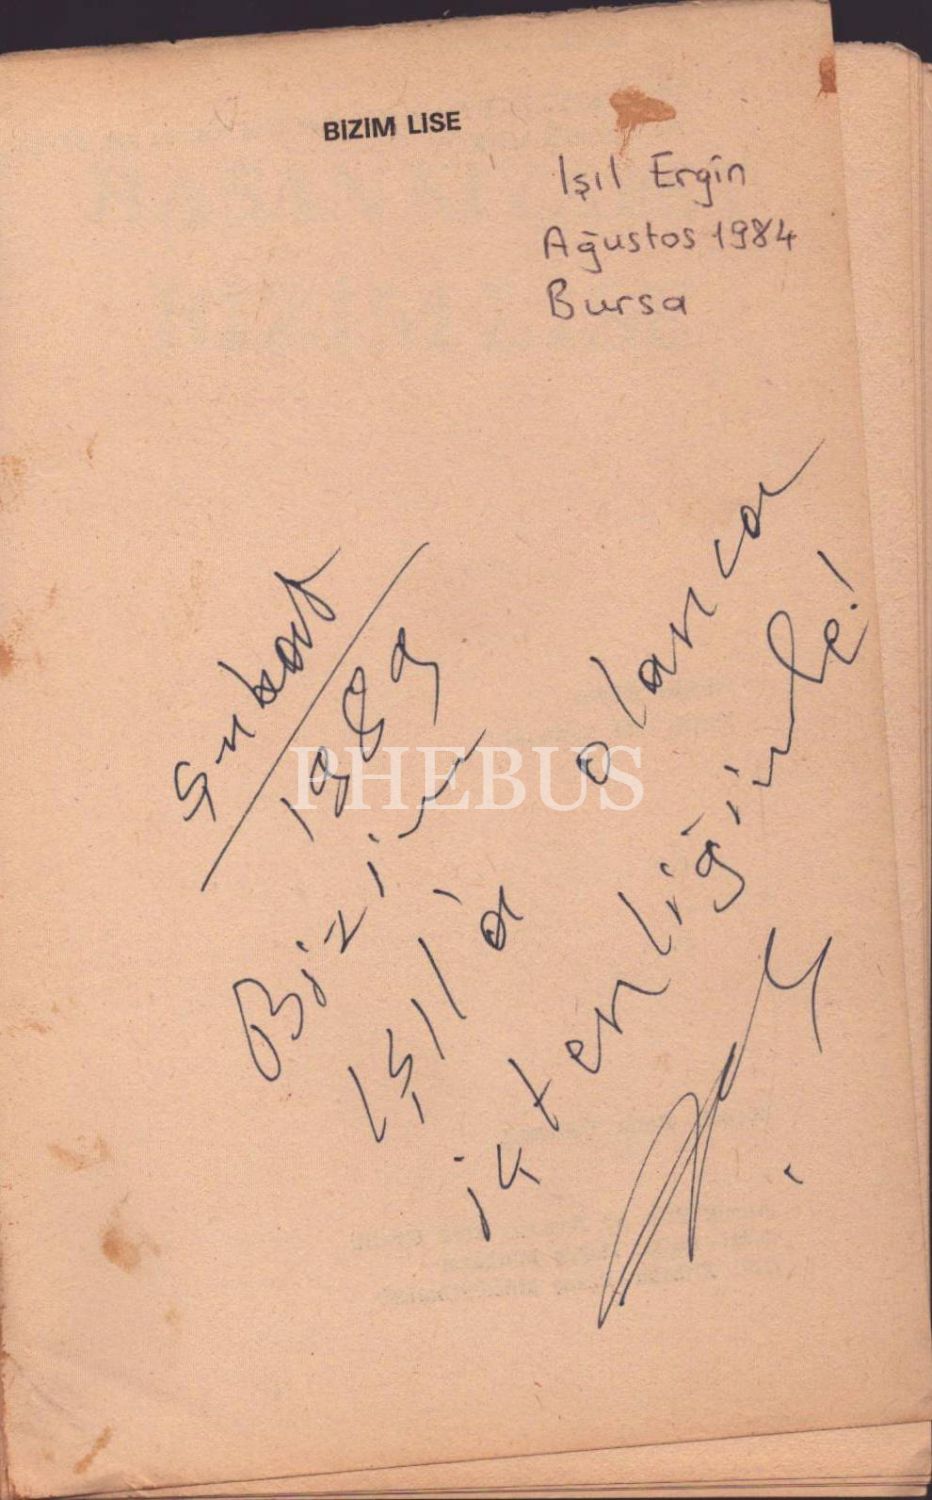 BİZİM LİSE
Işıl Ergin
Ağustos 1984
Bursa
Şubat
1989
Bizim
Işıl'a olanca
içtenliğimle!
PHEBUS